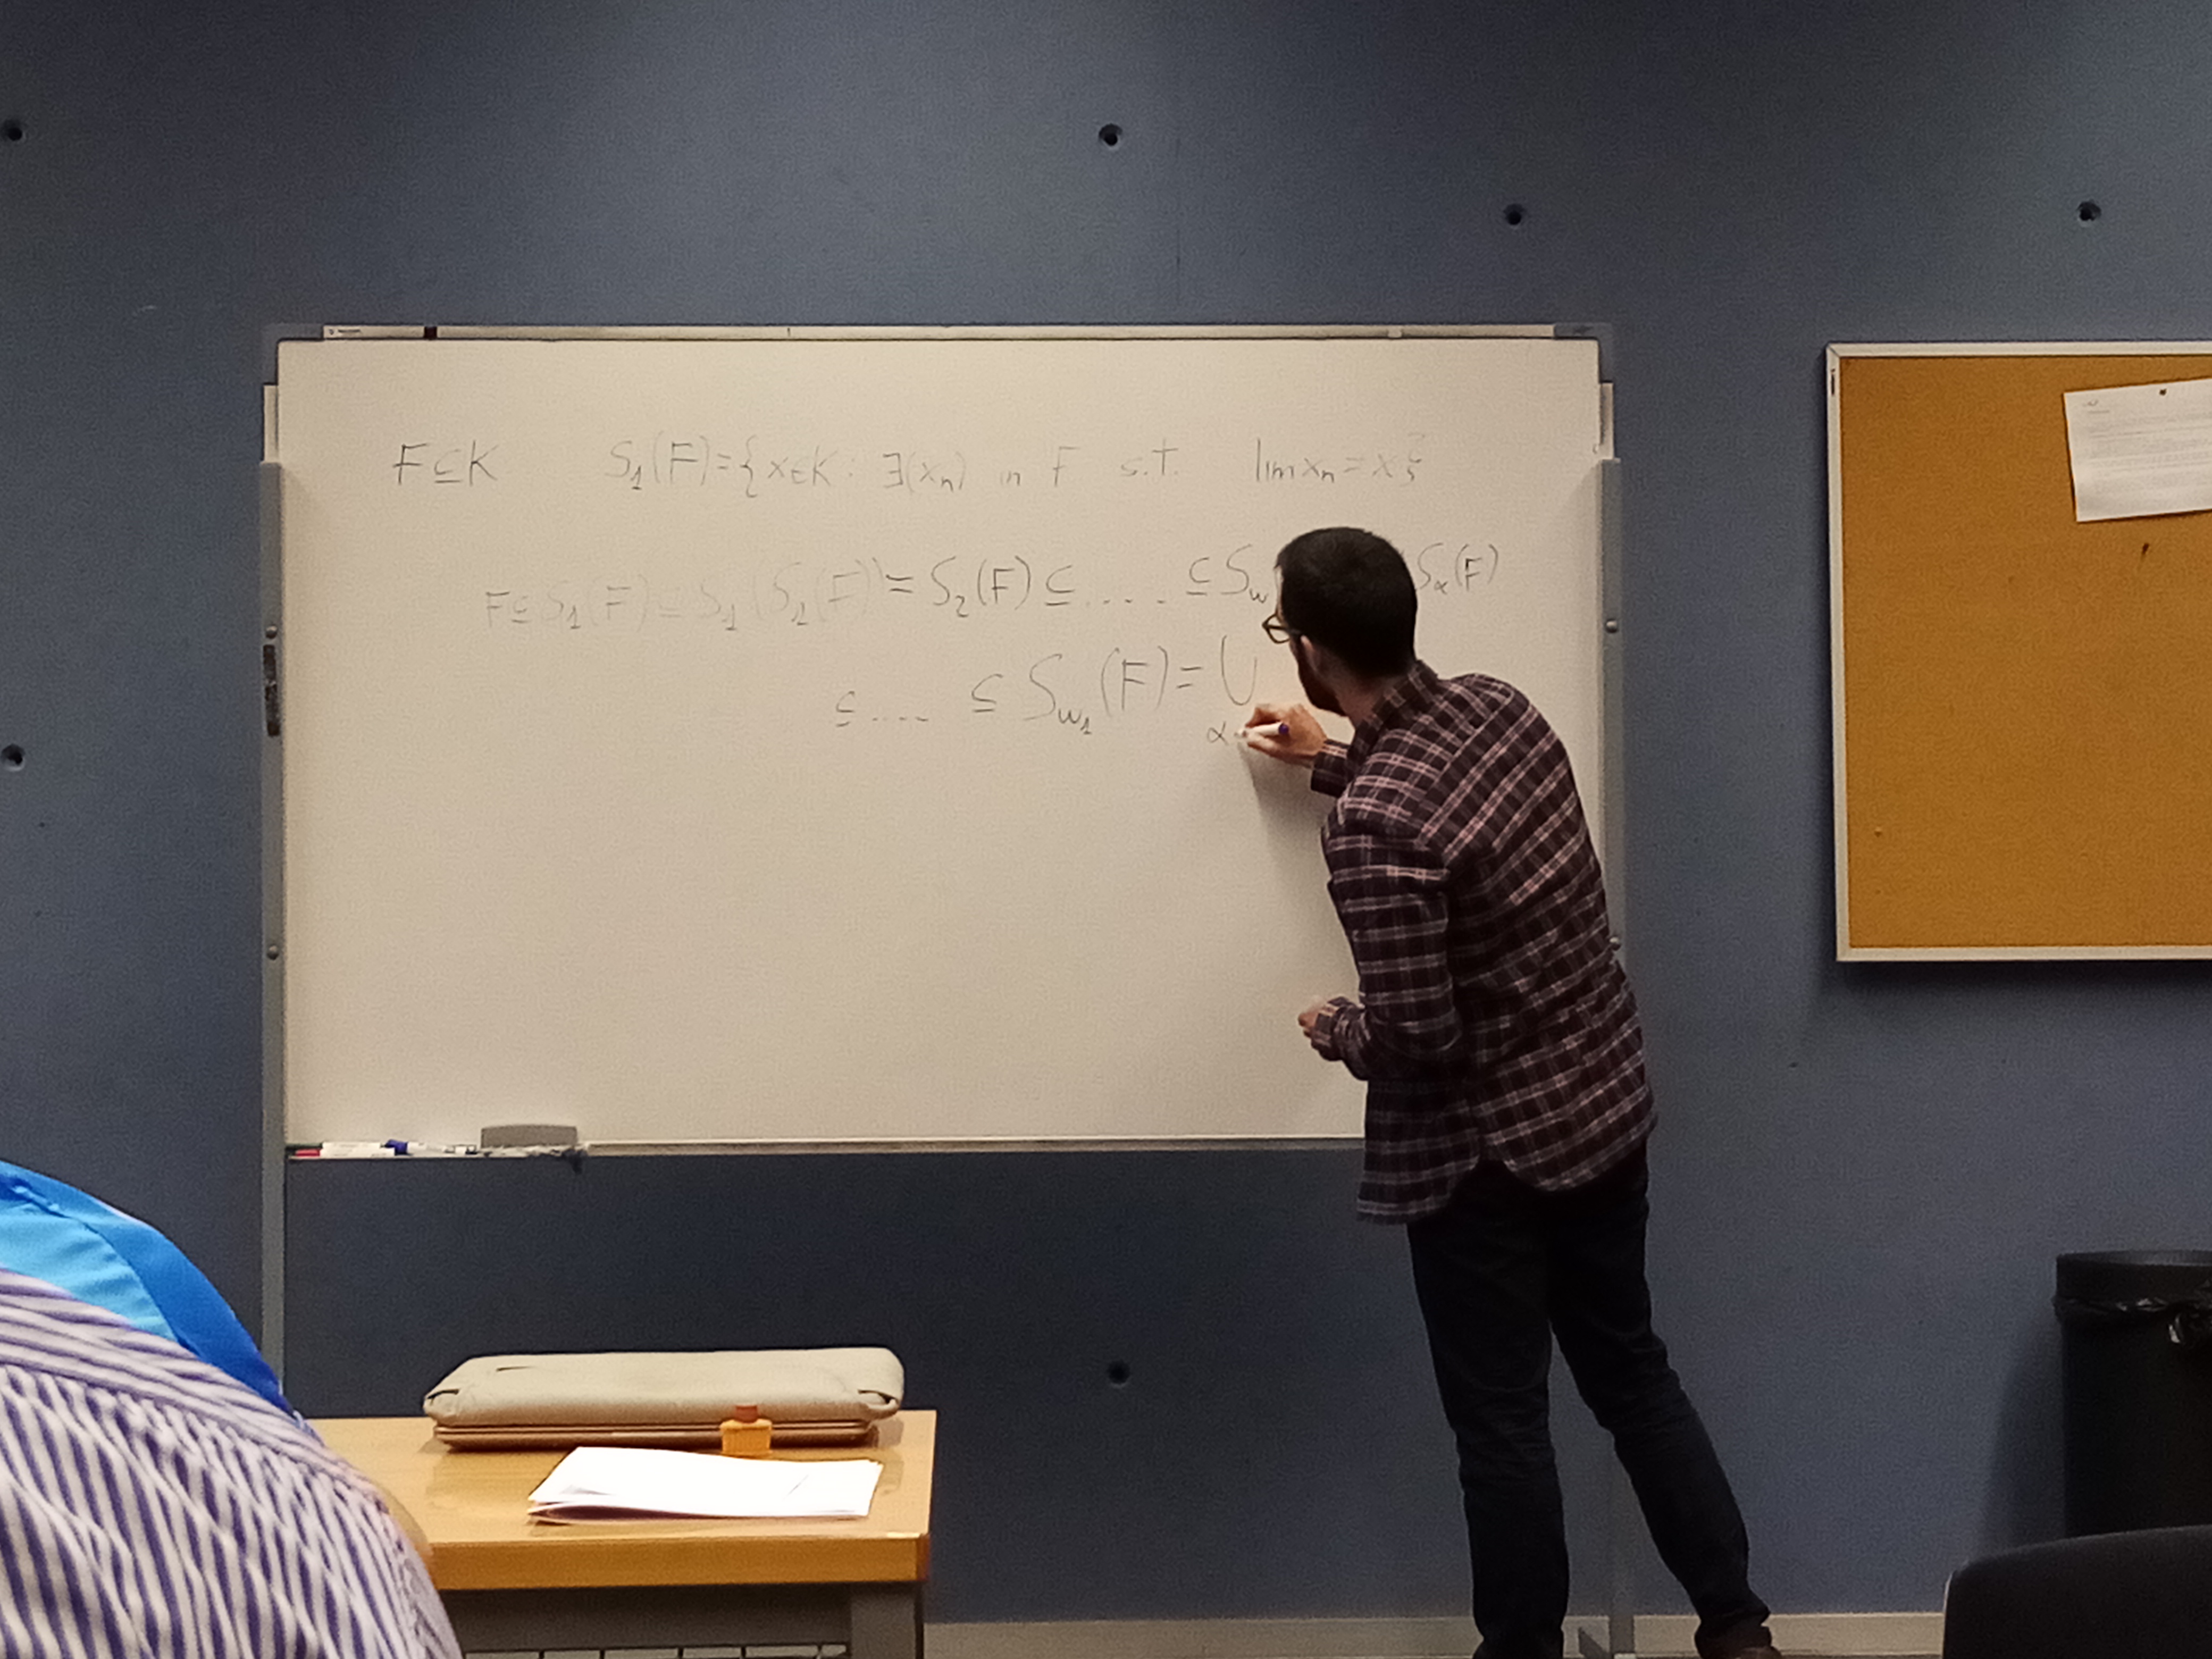 F ⊆ K S₁(F) = { x ∈ K : ∃(xₙ) in F s.t. lim xₙ = x }
F ⊆ S₁(F) ⊆ S₁(S₁(F)) = S₂(F) ⊆ .... ⊆ S_ω S_α(F)
⊆ .... ⊆ S_ω₁(F) = ⋃ α